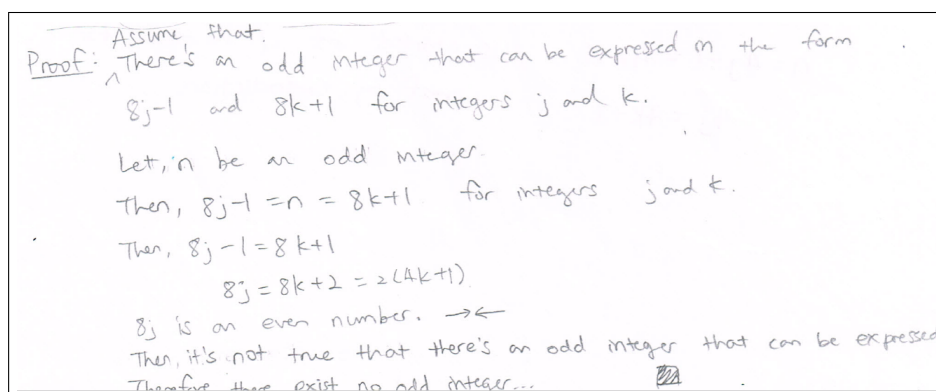 Assume that.
Proof: There's an odd integer that can be expressed in the form
8j-1 and 8k+1 for integers j and k.
Let, n be an odd integer.
Then, 8j-1 = n = 8k+1 for integers j and k.
Then, 8j-1 = 8k+1
8j = 8k+2 = 2(4k+1)
8j is an even number. →←
Then, it's not true that there's an odd integer that can be expressed
Therefore there exist no odd integer...